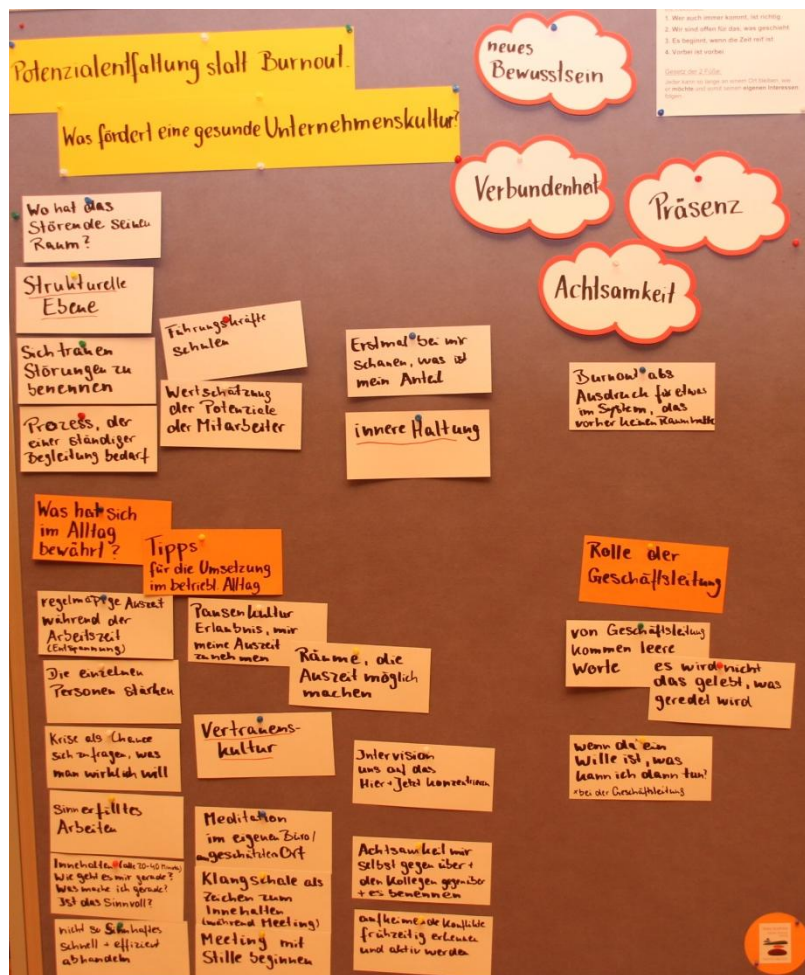 Potenzialentfaltung statt Burnout.
Was fördert eine gesunde Unternehmenskultur?
neues
Bewusstsein
1. Wer auch immer kommt, ist richtig
2. Wir sind offen für das, was geschieht
3. Es beginnt, wenn die Zeit reif ist
4. Vorbei ist vorbei
Gesetz der 2 Füße:
Jeder kann so lange an einem Ort bleiben, wie
er möchte und somit seinen eigenen Interessen
folgen.
Verbundenheit
Präsenz
Achtsamkeit
Wo hat das
Störende seinen
Raum?
Strukturelle
Ebene
Sich trauen
Störungen zu
benennen
Prozess, der
einer ständiger
Begleitung bedarf
Führungskräfte
schulen
Wertschätzung
der Potenziale
der Mitarbeiter
Erstmal bei mir
schauen, was ist
mein Anteil
innere Haltung
Burnout als
Ausdruck für etwas
im System, das
vorher keinen Raum hatte
Was hat sich
im Alltag
bewährt?
Tipps
für die Umsetzung
im betriebl. Alltag
Rolle der
Geschäftsleitung
regelmäßige Auszeit
während der
Arbeitszeit
(Entspannung)
Die einzelnen
Personen stärken
Krise als Chance
sich zu fragen, was
man wirklich will
Sinnerfülltes
Arbeiten
Innehalten (alle 20-40 Minuten)
Wie geht es mir gerade?
Was mache ich gerade?
Ist das Sinnvoll?
nicht so Sinnhaftes
schnell + effizient
abhandeln
Pausenkultur
Erlaubnis, mir
meine Auszeit
zu nehmen
Räume, die
Auszeit möglich
machen
Vertrauens-
kultur
Meditation
im eigenen Büro/
geschützten Ort
Klangschale als
Zeichen zum
Innehalten
(während Meeting)
Meeting mit
Stille beginnen
Intervision
uns auf das
Hier + Jetzt konzentrieren
Achtsamkeit mir
selbst gegenüber +
den Kollegen gegenüber
+ es benennen
aufkeimende Konflikte
frühzeitig erkennen
und aktiv werden
von Geschäftsleitung
kommen leere
Worte
es wird nicht
das gelebt, was
geredet wird
wenn da ein
Wille ist, was
kann ich dann tun?
*bei der Geschäftsleitung